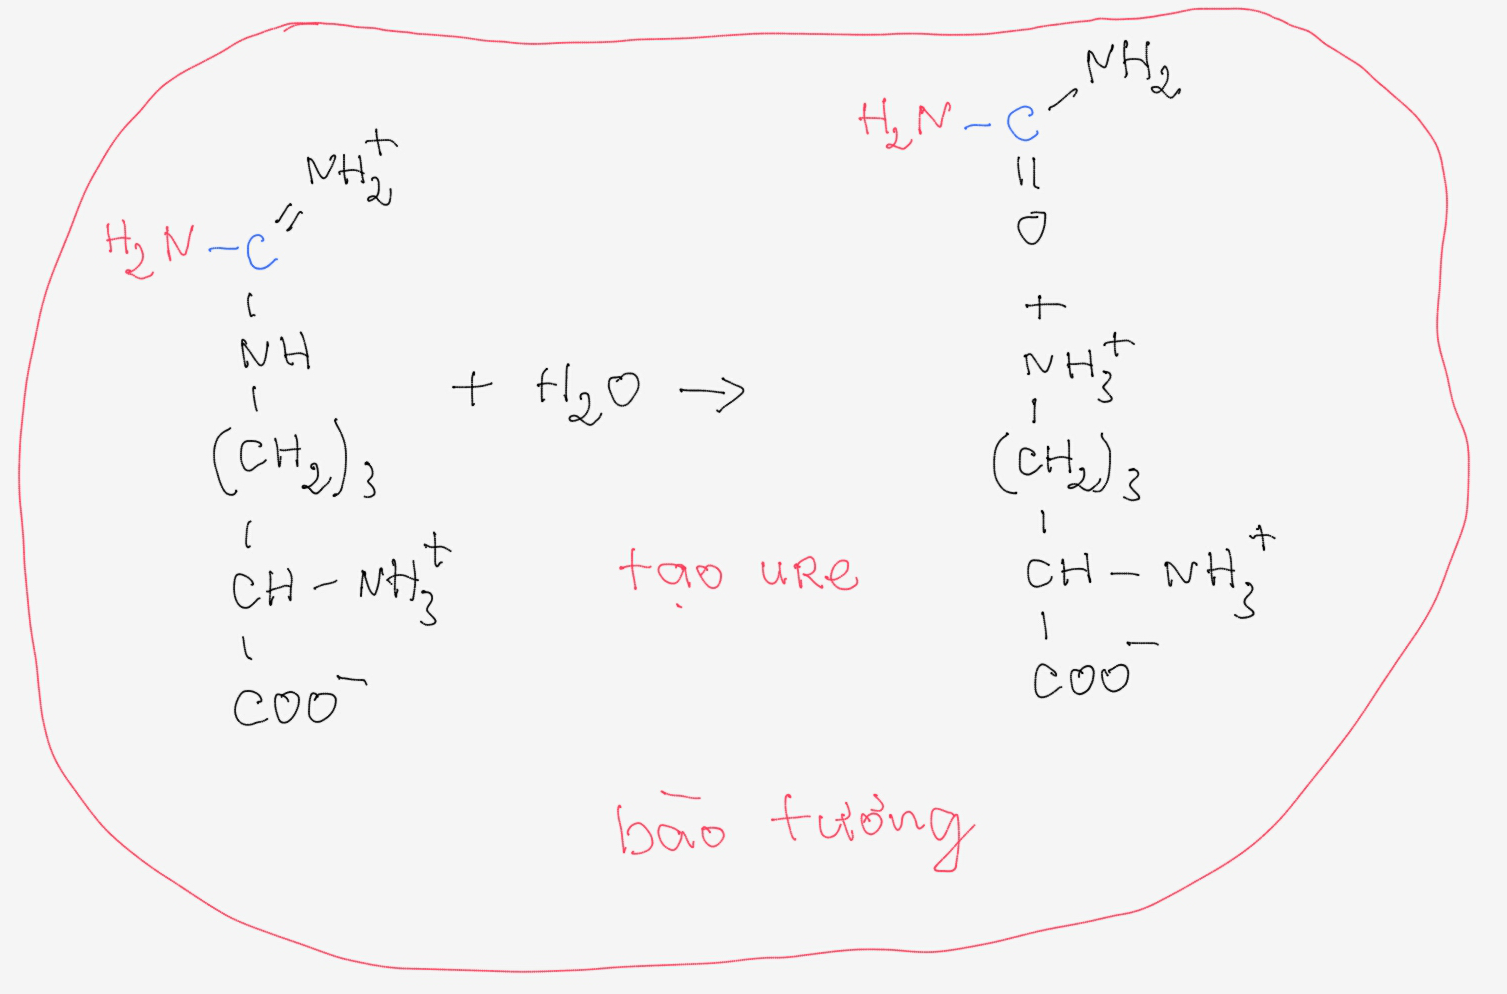 NH₂⁺
H₂N - C
NH
(CH₂)₃
CH - NH₃⁺
COO⁻
+ H₂O →
NH₂
H₂N - C
O
+
NH₃⁺
(CH₂)₃
CH - NH₃⁺
COO⁻
tạo URe
bāo tưởng